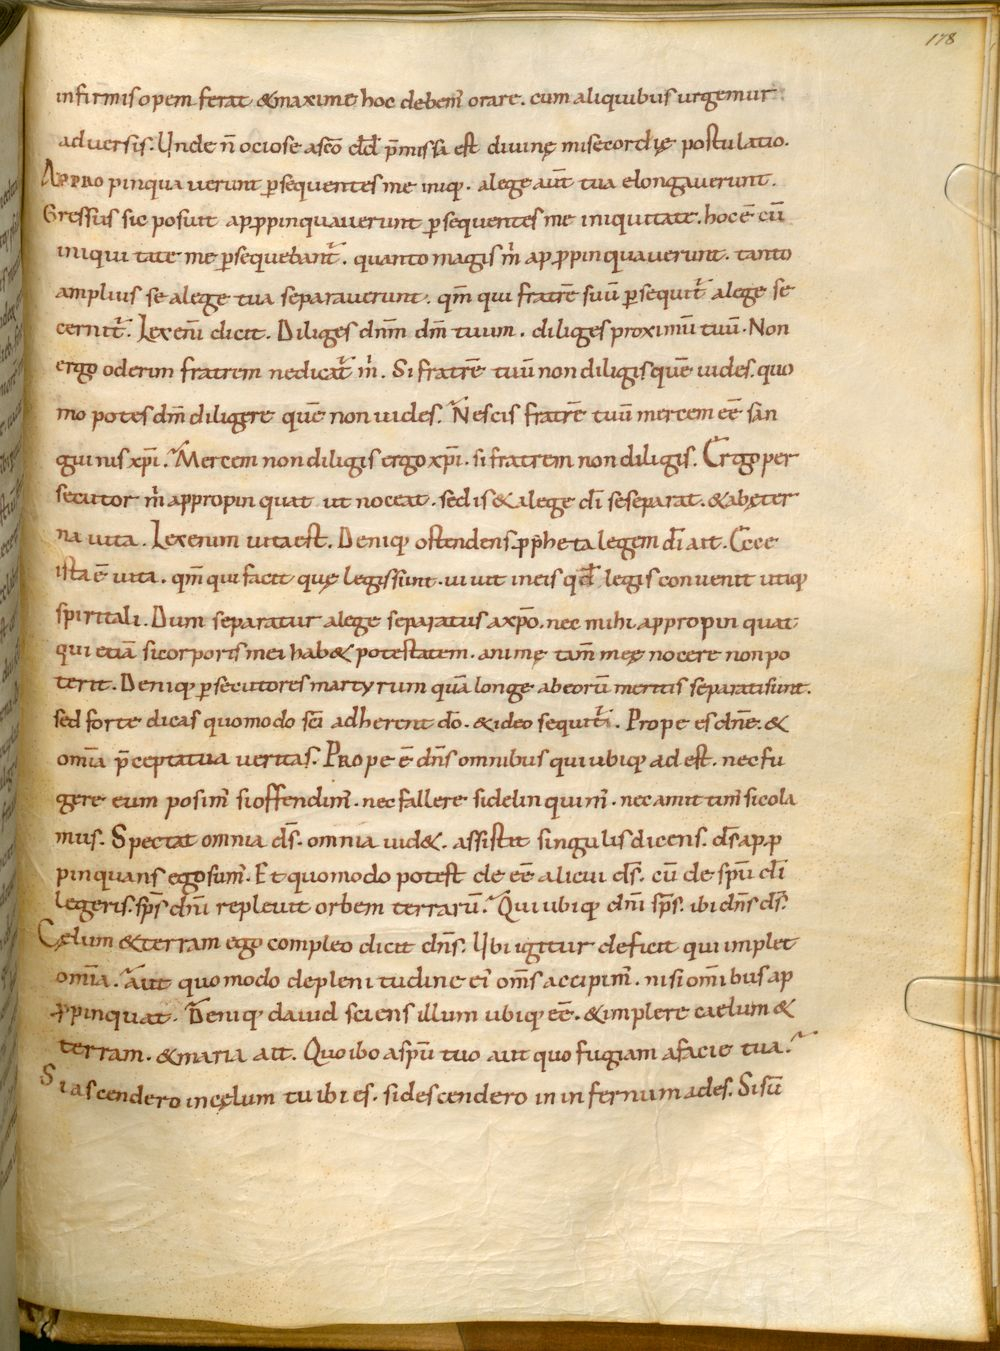 178
infirmis opem ferat &maxime hoc debem̄ orare. cum aliquibus urgemur
adversis. Unde n̄ ociose a scō dd̄ p̄missa est divinę misecordię postulatio.
Appropinquaverunt ꝑsequentes me iniq̣. a lege aūt tua elongaverunt.
Gressus sic posuit apꝓpinquaverunt ꝑsequentes me iniquitate. hoc ē cū
iniquitate me ꝑsequebant᷑. quanto magis m̄ apꝓpinquaverunt. tanto
amplius se a lege tua separaverunt. qm̄ qui fratrē suū ꝑsequit᷑ a lege se
cernit᷑. Lex enī dicit. Diliges dnm̄ dm̄ tuum. diliges proximū tuū. Non
ergo oderim fratrem ne dicat᷑ m̄. Si fratrē tuū non diligis quē vides. quo
modo potes dm̄ diligere quē non vides. Nescis fratrē tuū mercem eē san
guinis xp̄i. Mercem non diligis ergo xp̄i. si fratrem non diligis. Ergo per
secutor m̄ appropinquat ut noceat. sed is &a lege dī se separat. &ab ęter
na vita. Lex enim vita est. Deniq̣ ostendens ꝓpheta legem dī ait. Ecce
ista ē vita. qm̄ qui facit quę legis sunt. vivit in eis qd̄ legis convenit utiq̣
spiritali. Dum separatur a lege separatus a xp̄o. nec mihi appropinquat
qui etiā si corporis mei hab& potestatem. animę tam̄ meę nocere non po
terit. Deniq̣ ꝑsecutores martyrum quā longe ab eorū meritis separati sunt.
sed forte dicas quomodo scī adherent dō. &ideo sequit᷑. Prope es dn̄e. &
omīa p̄cepta tua veritas. Prope ē dn̄s omnibus qui ubiq̣ adest. nec fu
gere eum posim̄ si offendim̄. nec fallere si delinquim̄. nec amittim̄ si cola
mus. Spectat omnia ds̄. omnia vid&. assistit singulis dicens. ds̄ apꝓ
pinquans ego sum. Et quomodo potest deeē alicui ds̄. cū de spū dī
legeris. sps̄ dnī replevit orbem terrarū. Qui ubiq̣ dnī sps̄. ibi dn̄s ds̄.
Cęlum &terram ego compleo dicit dn̄s. Ubi igitur deficit qui implet
omīa. Aut quomodo de plenitudine eī oms̄ accipim̄. nisi omībus ap
ꝓpinquat. Deniq̣ david sciens illum ubiq̣ eē. &implere caelum &
terram. &maria ait. Quo ibo a spū tuo aut quo fugiam a facie tua.
Si ascendero in cęlum tu ibi es. si descendero in infernum ades. Si sū